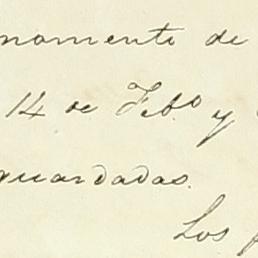 momento de
14 de Feb.o y
guardadas.
Los